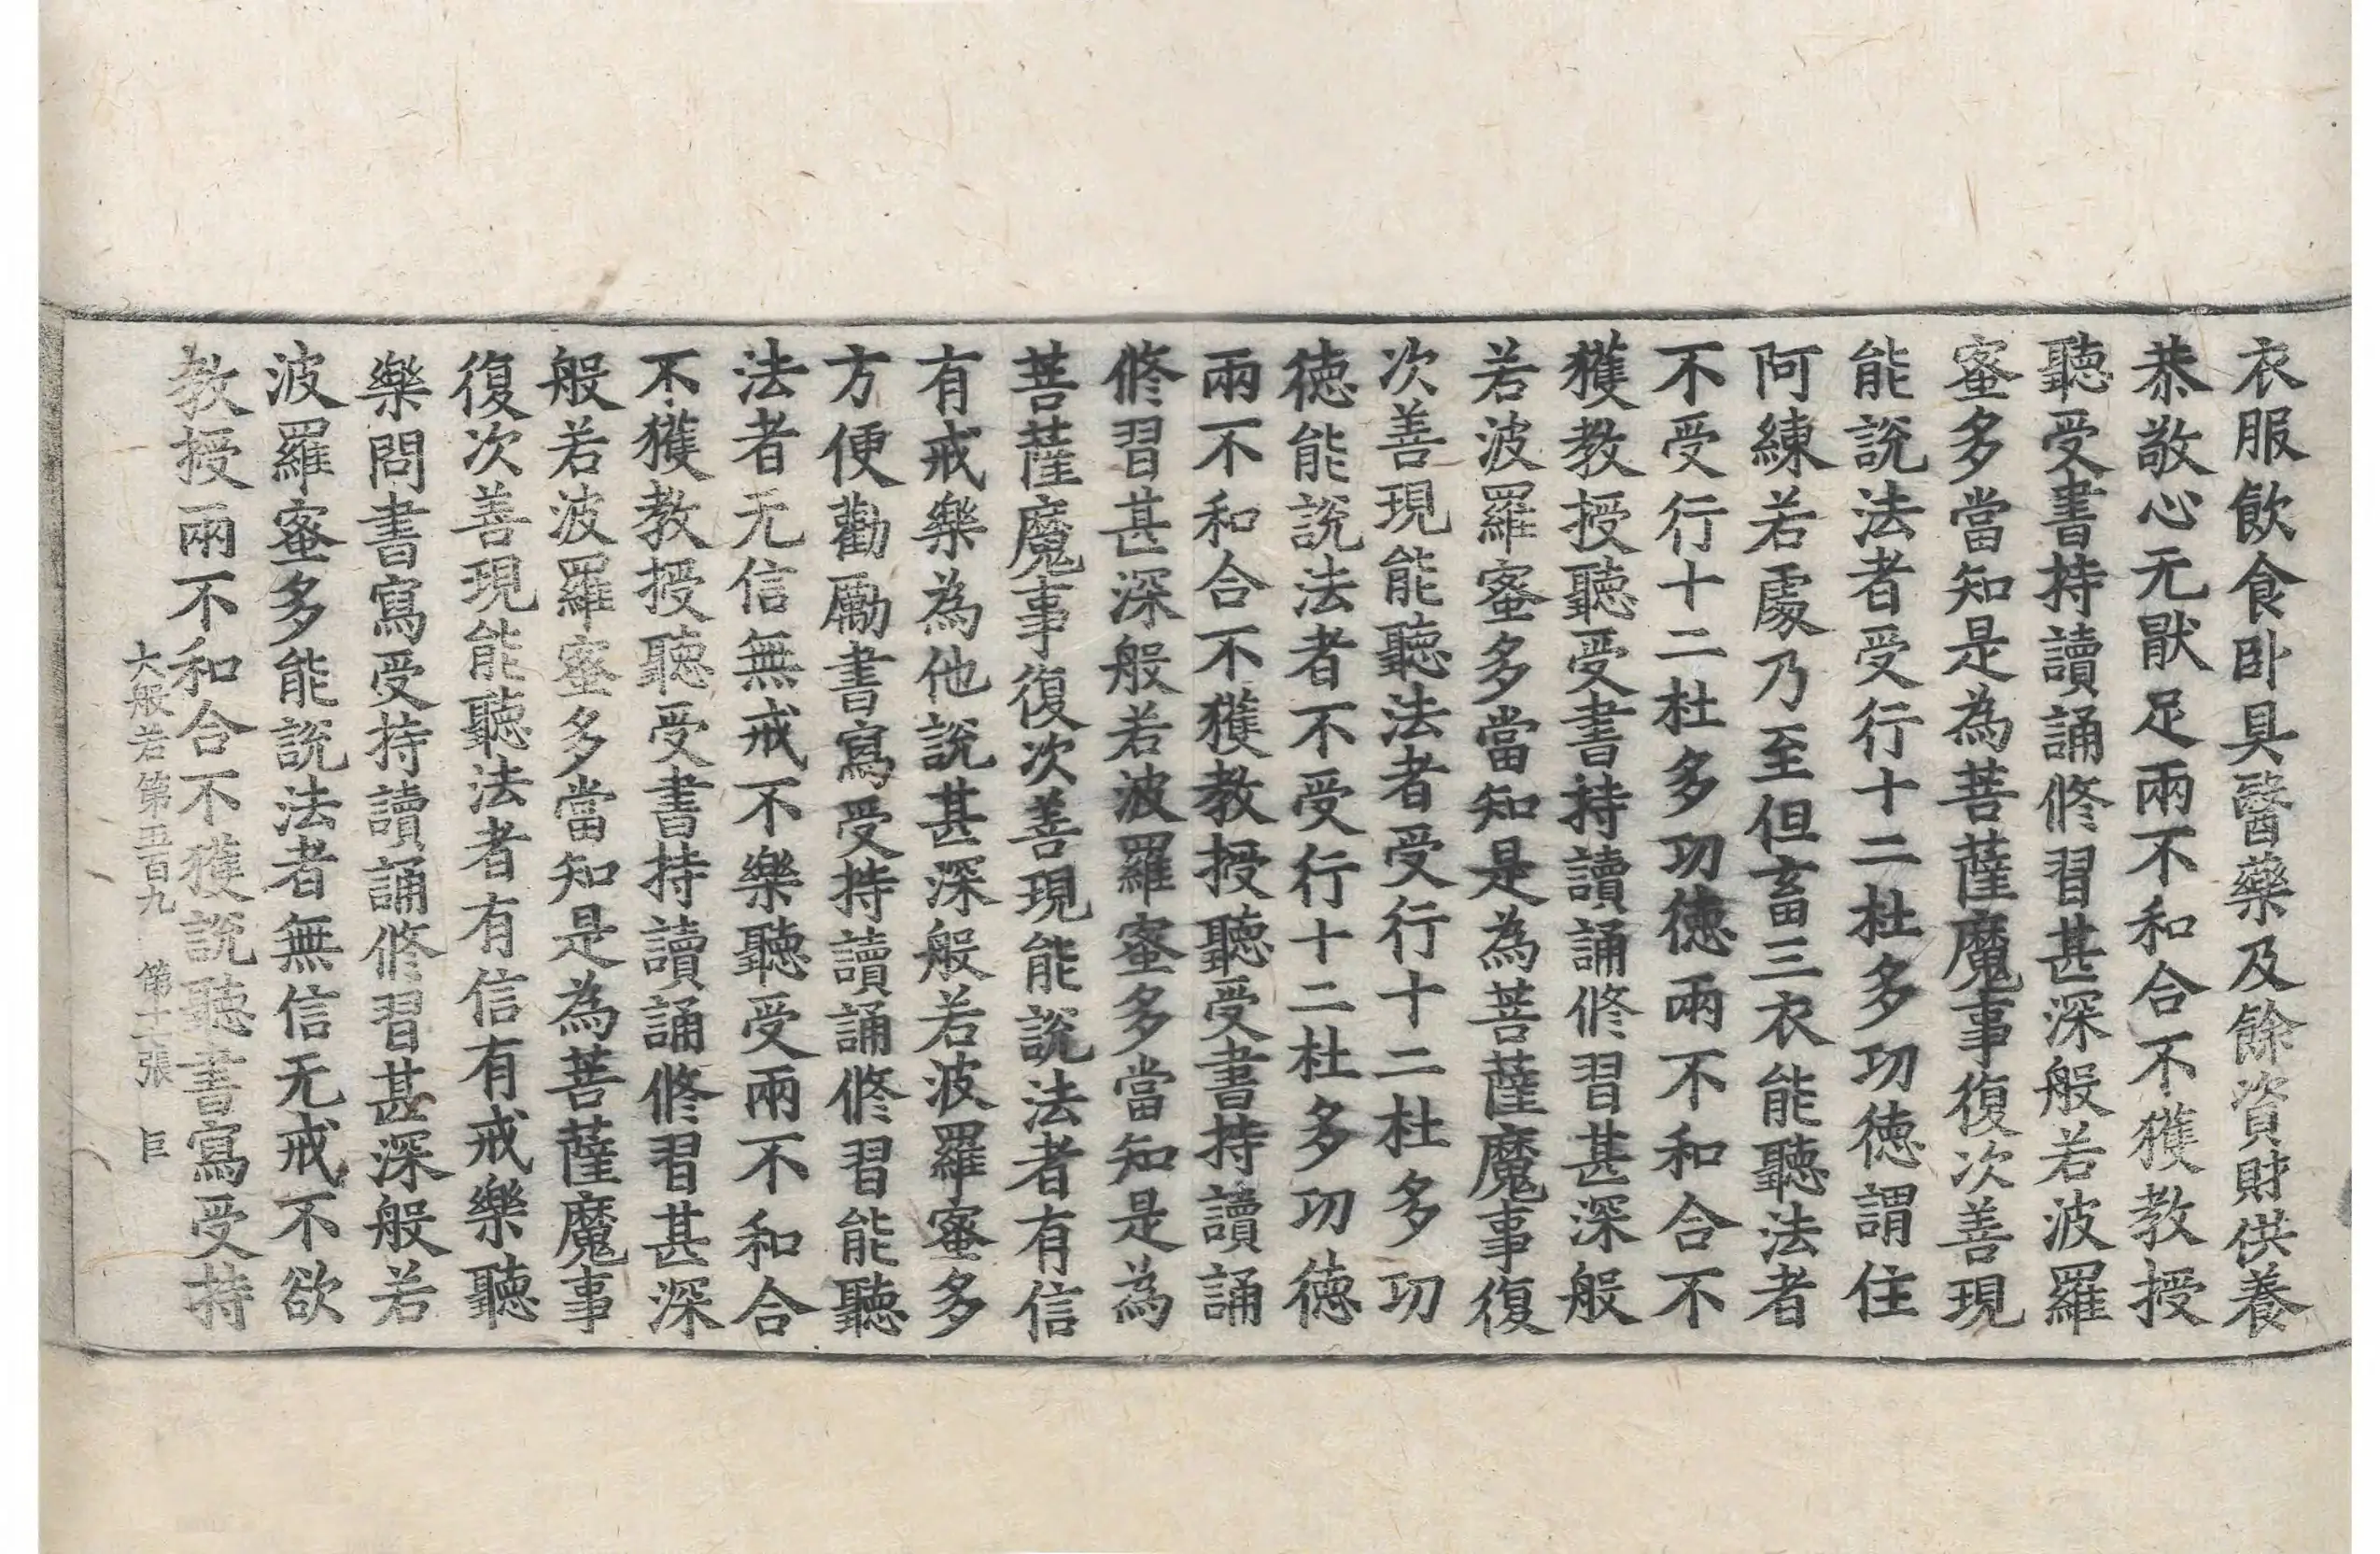 衣服飲食卧具醫藥及餘資財供養
恭敬心无猒足兩不和合不獲教授
聽受書持讀誦修習甚深般若波羅
蜜多當知是為菩薩魔事復次善現
能說法者受行十二杜多功德謂住
阿練若處乃至但畜三衣能聽法者
不受行十二杜多功德兩不和合不
獲教授聽受書持讀誦修習甚深般
若波羅蜜多當知是為菩薩魔事復
次善現能聽法者受行十二杜多功
德能說法者不受行十二杜多功德
兩不和合不獲教授聽受書持讀誦
修習甚深般若波羅蜜多當知是為
菩薩魔事復次善現能說法者有信
有戒樂為他說甚深般若波羅蜜多
方便勸勵書寫受持讀誦修習能聽
法者无信無戒不樂聽受兩不和合
不獲教授聽受書持讀誦修習甚深
般若波羅蜜多當知是為菩薩魔事
復次善現能聽法者有信有戒樂聽
樂問書寫受持讀誦修習甚深般若
波羅蜜多能說法者無信无戒不欲
教授兩不和合不獲說聽書寫受持
大般若第五百九 第十二張 巨